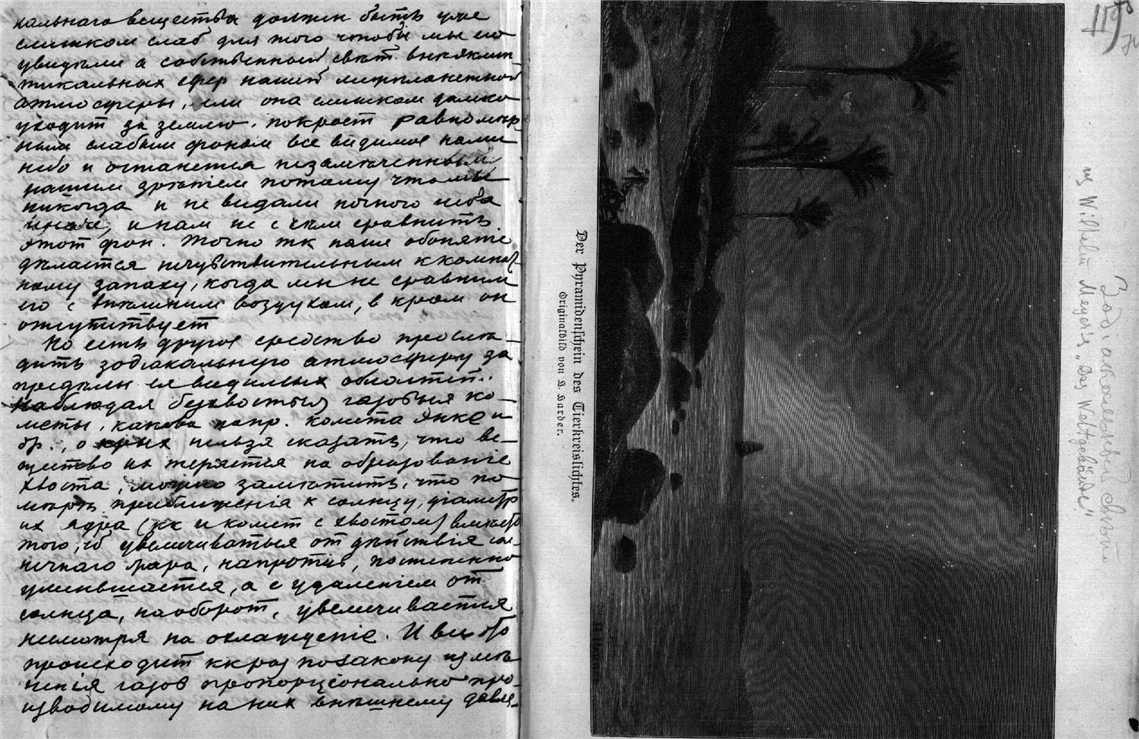 кального вещества должен быть уже
слишком слаб для того чтобы мы его
увидѣли а собственный свѣт внѣэклип
тикальных сфер нашей межпланетной
атмосферы, если она слишком далеко
уходит за землю, покроет равномѣр
ным слабым фоном все видимое нами
небо и останется незамѣченным
нашим зрѣнiем потому что мы
никогда и не видали ночного неба
иначе, и нам не с чѣм сравнить
этот фон. Точно тк наше обонянiе
дѣлается нечувствительным к комнат
ному запаху, когда мы не сравним
его с внѣшним воздухом, в кром он
отсутствует
Но есть другое средство прослѣ-
дить зодiакальную атмосферу за
предѣлы ея видимых областей.
Наблюдая безхвостыя газовыя ко-
меты, какова напр. комета Энке и
др., о крых нельзя сказать, что ве-
щество их теряется на образованiе
хвоста, можно замѣтить, что по
мѣрѣ приближенiя к солнцу, дiаметр
их ядра (кк и комет с хвостом) вмѣсто
того, чб увеличиваться от дѣйствiя сол
нечнаго жара, напротив, постепенно
уменьшается, а с удаленiем от
солнца, наоборот, увеличивается
несмотря на охлажденiе. И все это
происходит кк раз по закону измѣ
ненiя газов пропорцiонально про-
изводимому на них внѣшнему давле-
Der Pyramidenschein des Tierkreislichtes.
Originalbild von H. Harder.
Зодiакальный свѣт
из Wilhelm Meyer'a „Das Weltgebäude"
119